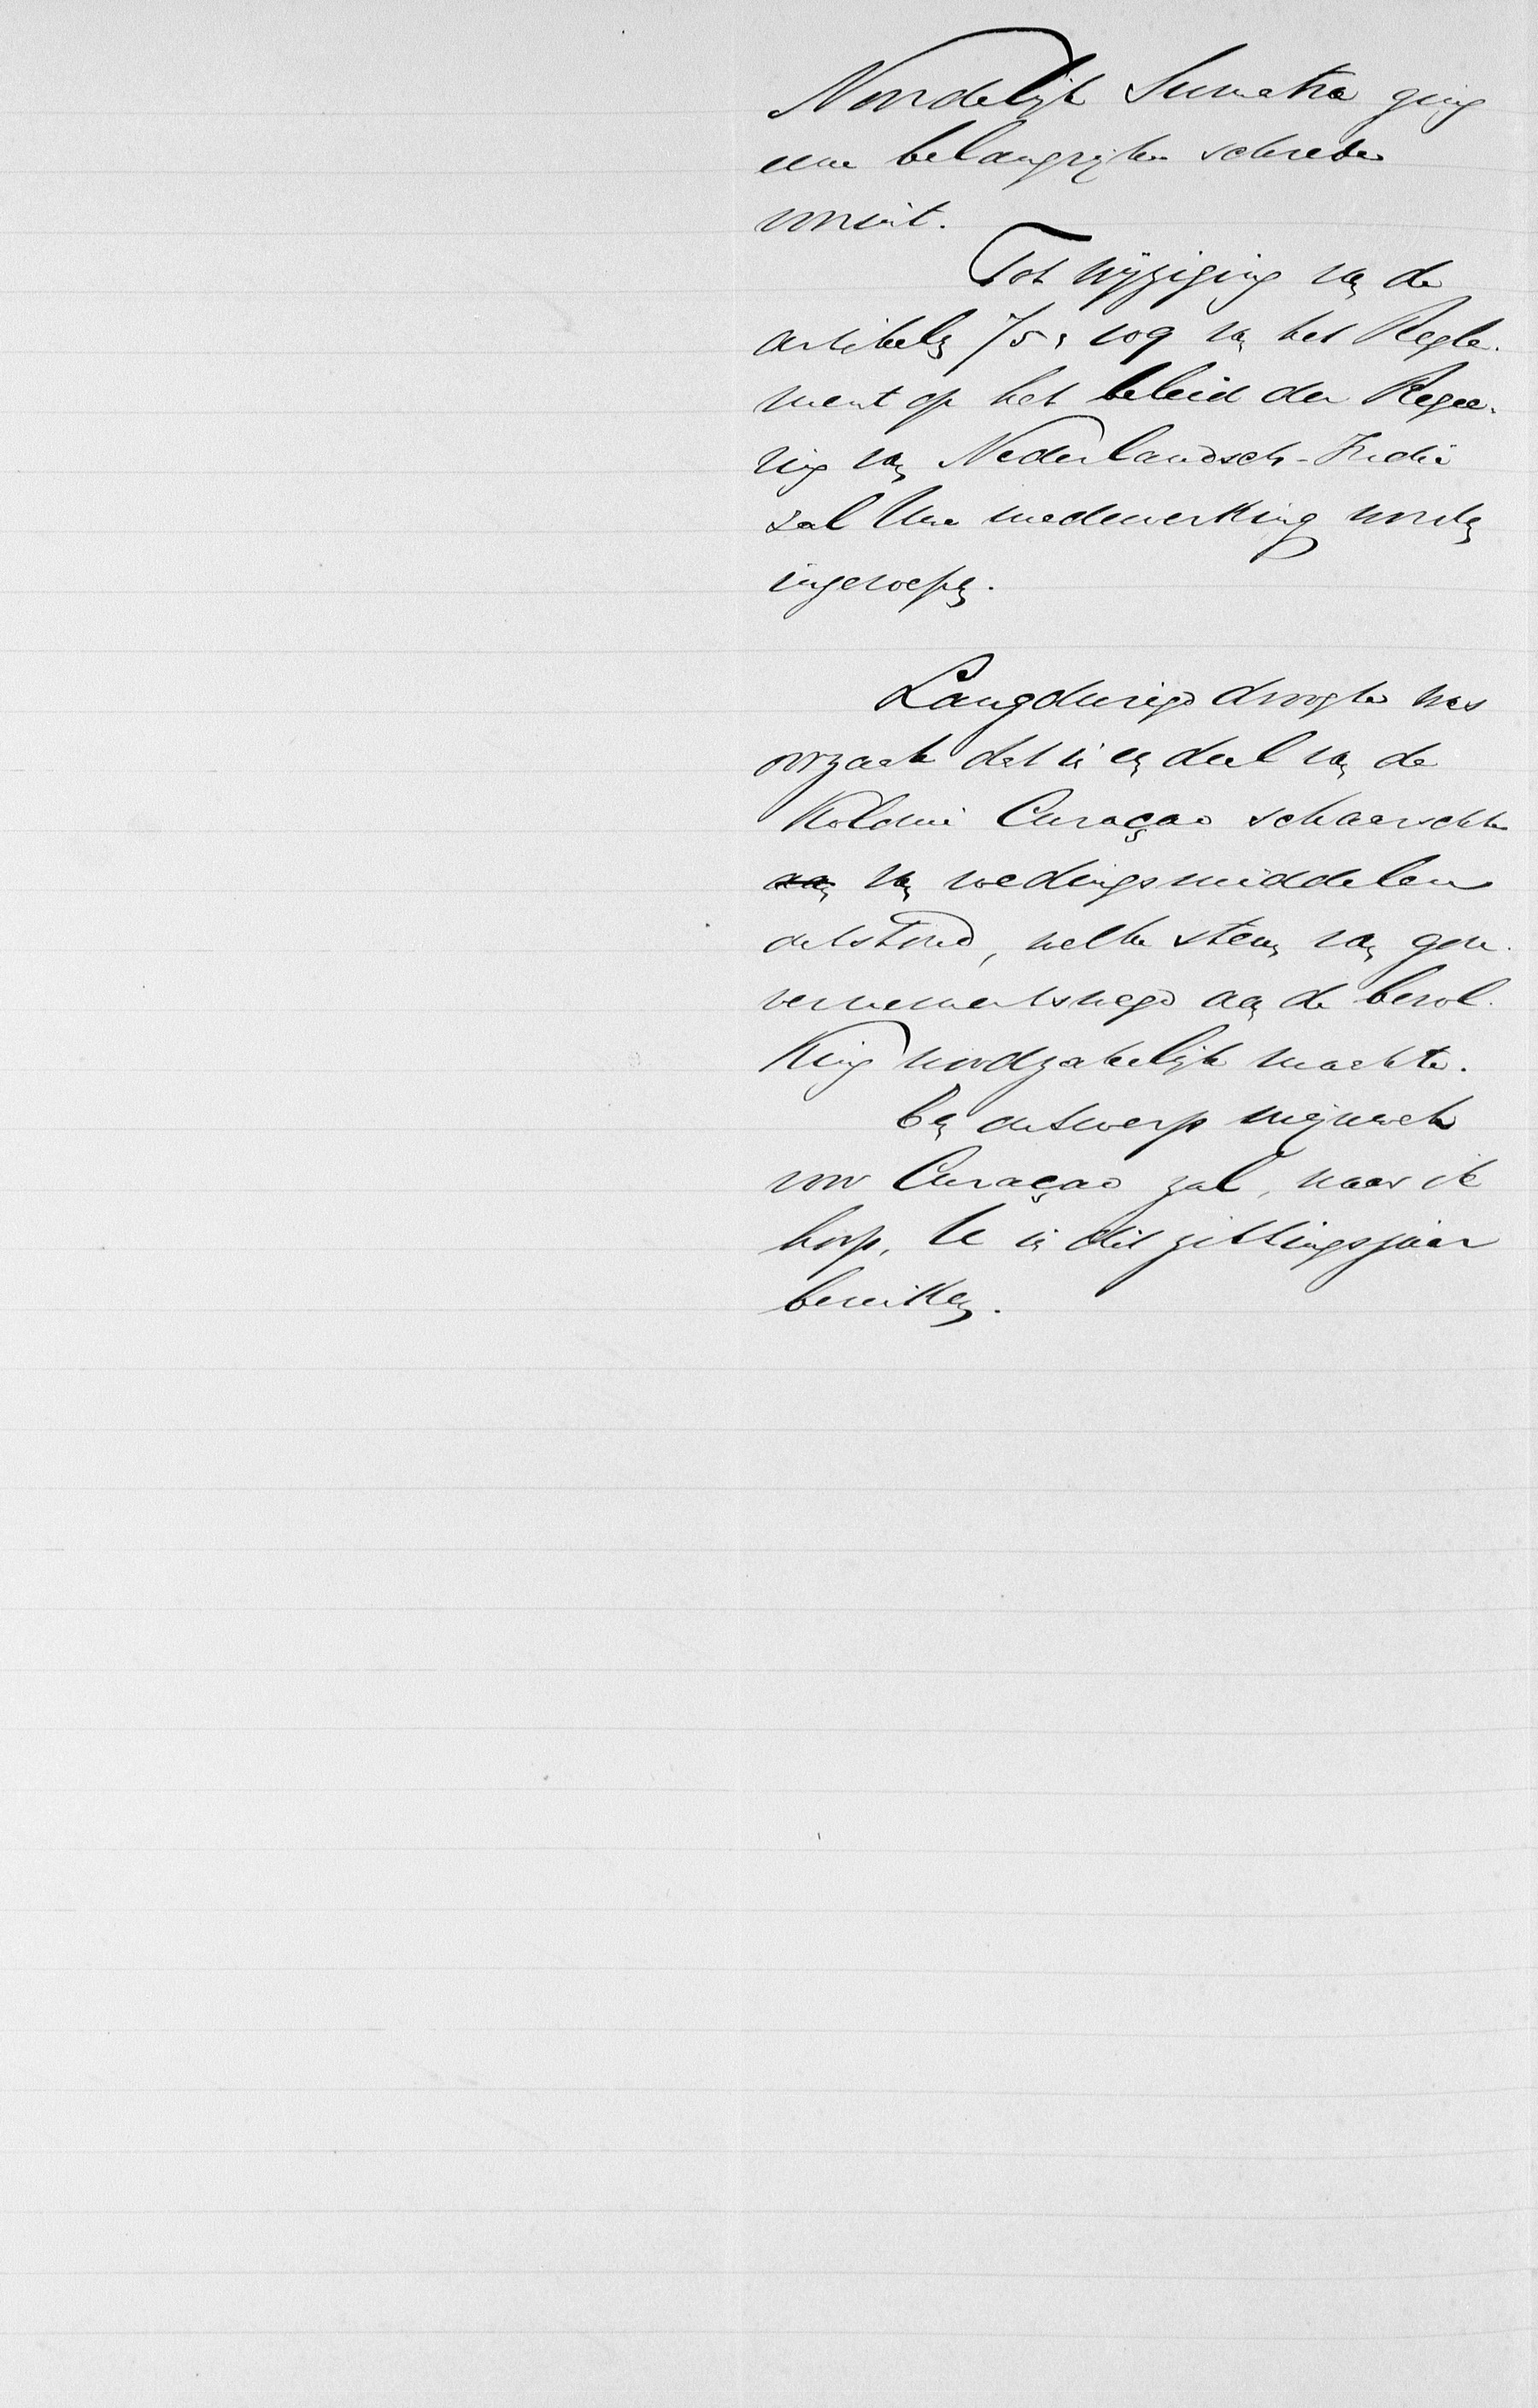 Noordelijk Sumatra ging
eene belangrijke schrede
vooruit.
Tot wijziging van de
artikelen 75 en 109 van het Regle-
ment op het beleid der Regee-
ring van Nederlandsch-Indië
zal Uwe medewerking worden
ingeroepen.
Langdurige droogte was
oorzaak dat in een deel van de
Kolonie Curaçao schaarschte
aan van voedingsmiddelen
ontstond, welke steun van gou-
vernementswege aan de bevol-
king noodzakelijk maakte.
Een ontwerp mijnwet
voor Curaçao zal, naar ik
hoop, U in dit zittingsjaar
bereiken.